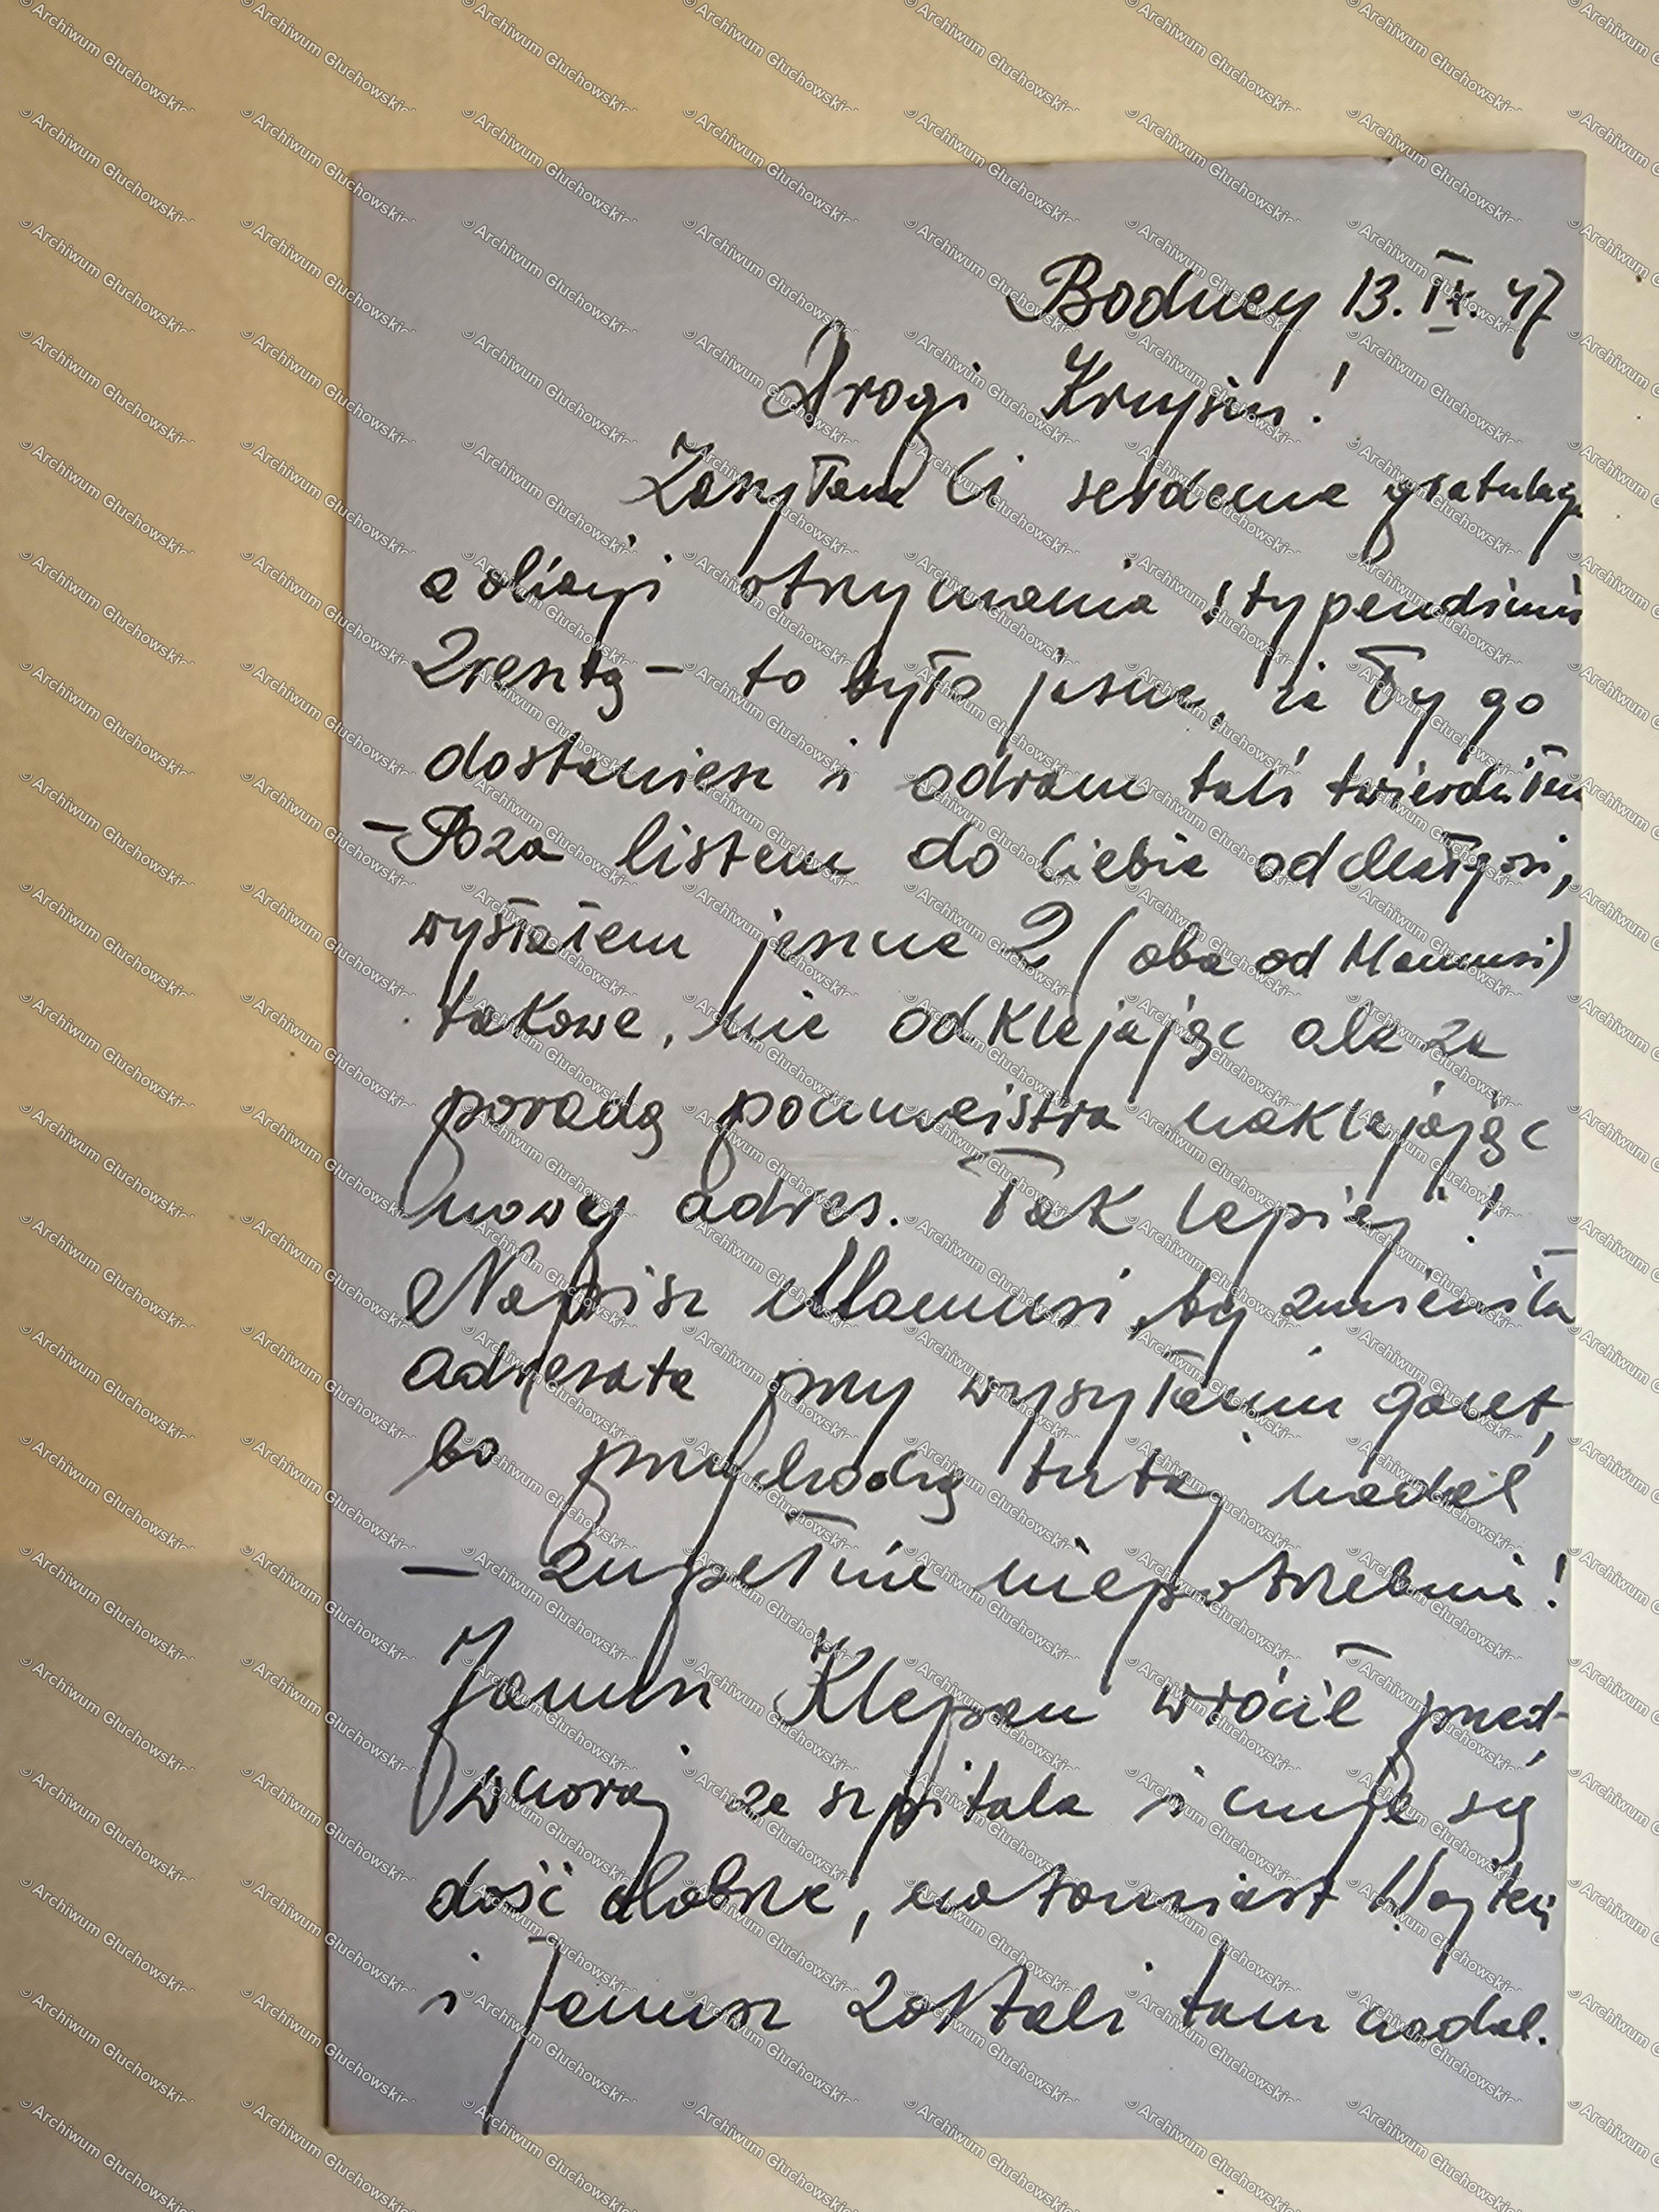 Bodney 13. IX. 47
Drogi Krzysiu!
Zasyłam Ci serdeczne gratulacje
z okazji otrzymania stypendium
Zresztą – to było jasne, że Ty go
dostaniesz i odrazu tak twierdziłem
– Poza listem do Ciebie od Małgosi,
wysłałem jeszcze 2 (oba od Mamusi)
takowe, nie odklejając ale za
poradą poczmeistra naklejając
nowy adres. Tak lepiej!
Napisz Mamusi, by zmieniła
adresata przy wysyłaniu gazet,
bo przychodzą tutaj nadal
– zupełnie niepotrzebnie!
Janusz Klepan wrócił przed-
wczoraj ze szpitala i czuje się
dość dobrze, natomiast
i Janusz zostali tam nadal.
© Archiwum Głuchowskich